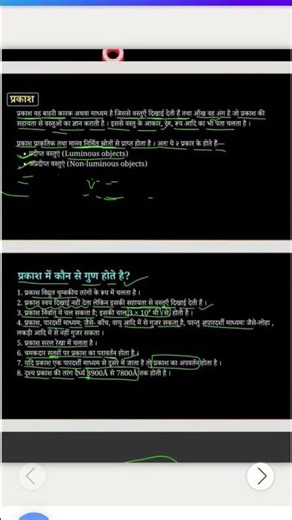 प्रकाश
प्रकाश वह बाहरी कारक अथवा माध्यम है जिससे वस्तुएँ दिखाई देती हैं तथा आँख वह अंग है जो प्रकाश की
सहायता से वस्तुओं का ज्ञान कराती है । इससे वस्तु के आकार, रंग, रूप आदि का भी पता चलता है ।
प्रकाश प्राकृतिक तथा मानव निर्मित स्रोतों से प्राप्त होता है । अतः ये २ प्रकार के होते हैं—
• प्रदीप्त वस्तुएं (Luminous objects)
• अप्रदीप्त वस्तुएँ (Non-luminous objects)
प्रकाश में कौन से गुण होते है?
1. प्रकाश विद्युत चुम्बकीय तरंगों के रूप में चलता है ।
2. प्रकाश स्वयं दिखाई नहीं देता लेकिन इसकी सहायता से वस्तुएँ दिखाई देती हैं ।
3. प्रकाश निर्वात् में चल सकता है; इसकी चाल 3 × 10⁸ मी/से होती है ।
4. प्रकाश, पारदर्शी माध्यम; जैसे- काँच, वायु आदि में से गुजर सकता है, परन्तु अपारदर्शी माध्यम; जैसे-लोहा ,
लकड़ी आदि में से नहीं गुजर सकता ।
5. प्रकाश सरल रेखा में चलता है ।
6. चमकदार सतहों पर प्रकाश का परावर्तन होता है ।
7. यदि प्रकाश एक पारदर्शी माध्यम से दूसरे में जाता है तो प्रकाश का अपवर्तन होता है ।
8. दृश्य प्रकाश की तरंग दैर्ध्य 3900Å से 7800Å तक होती है ।